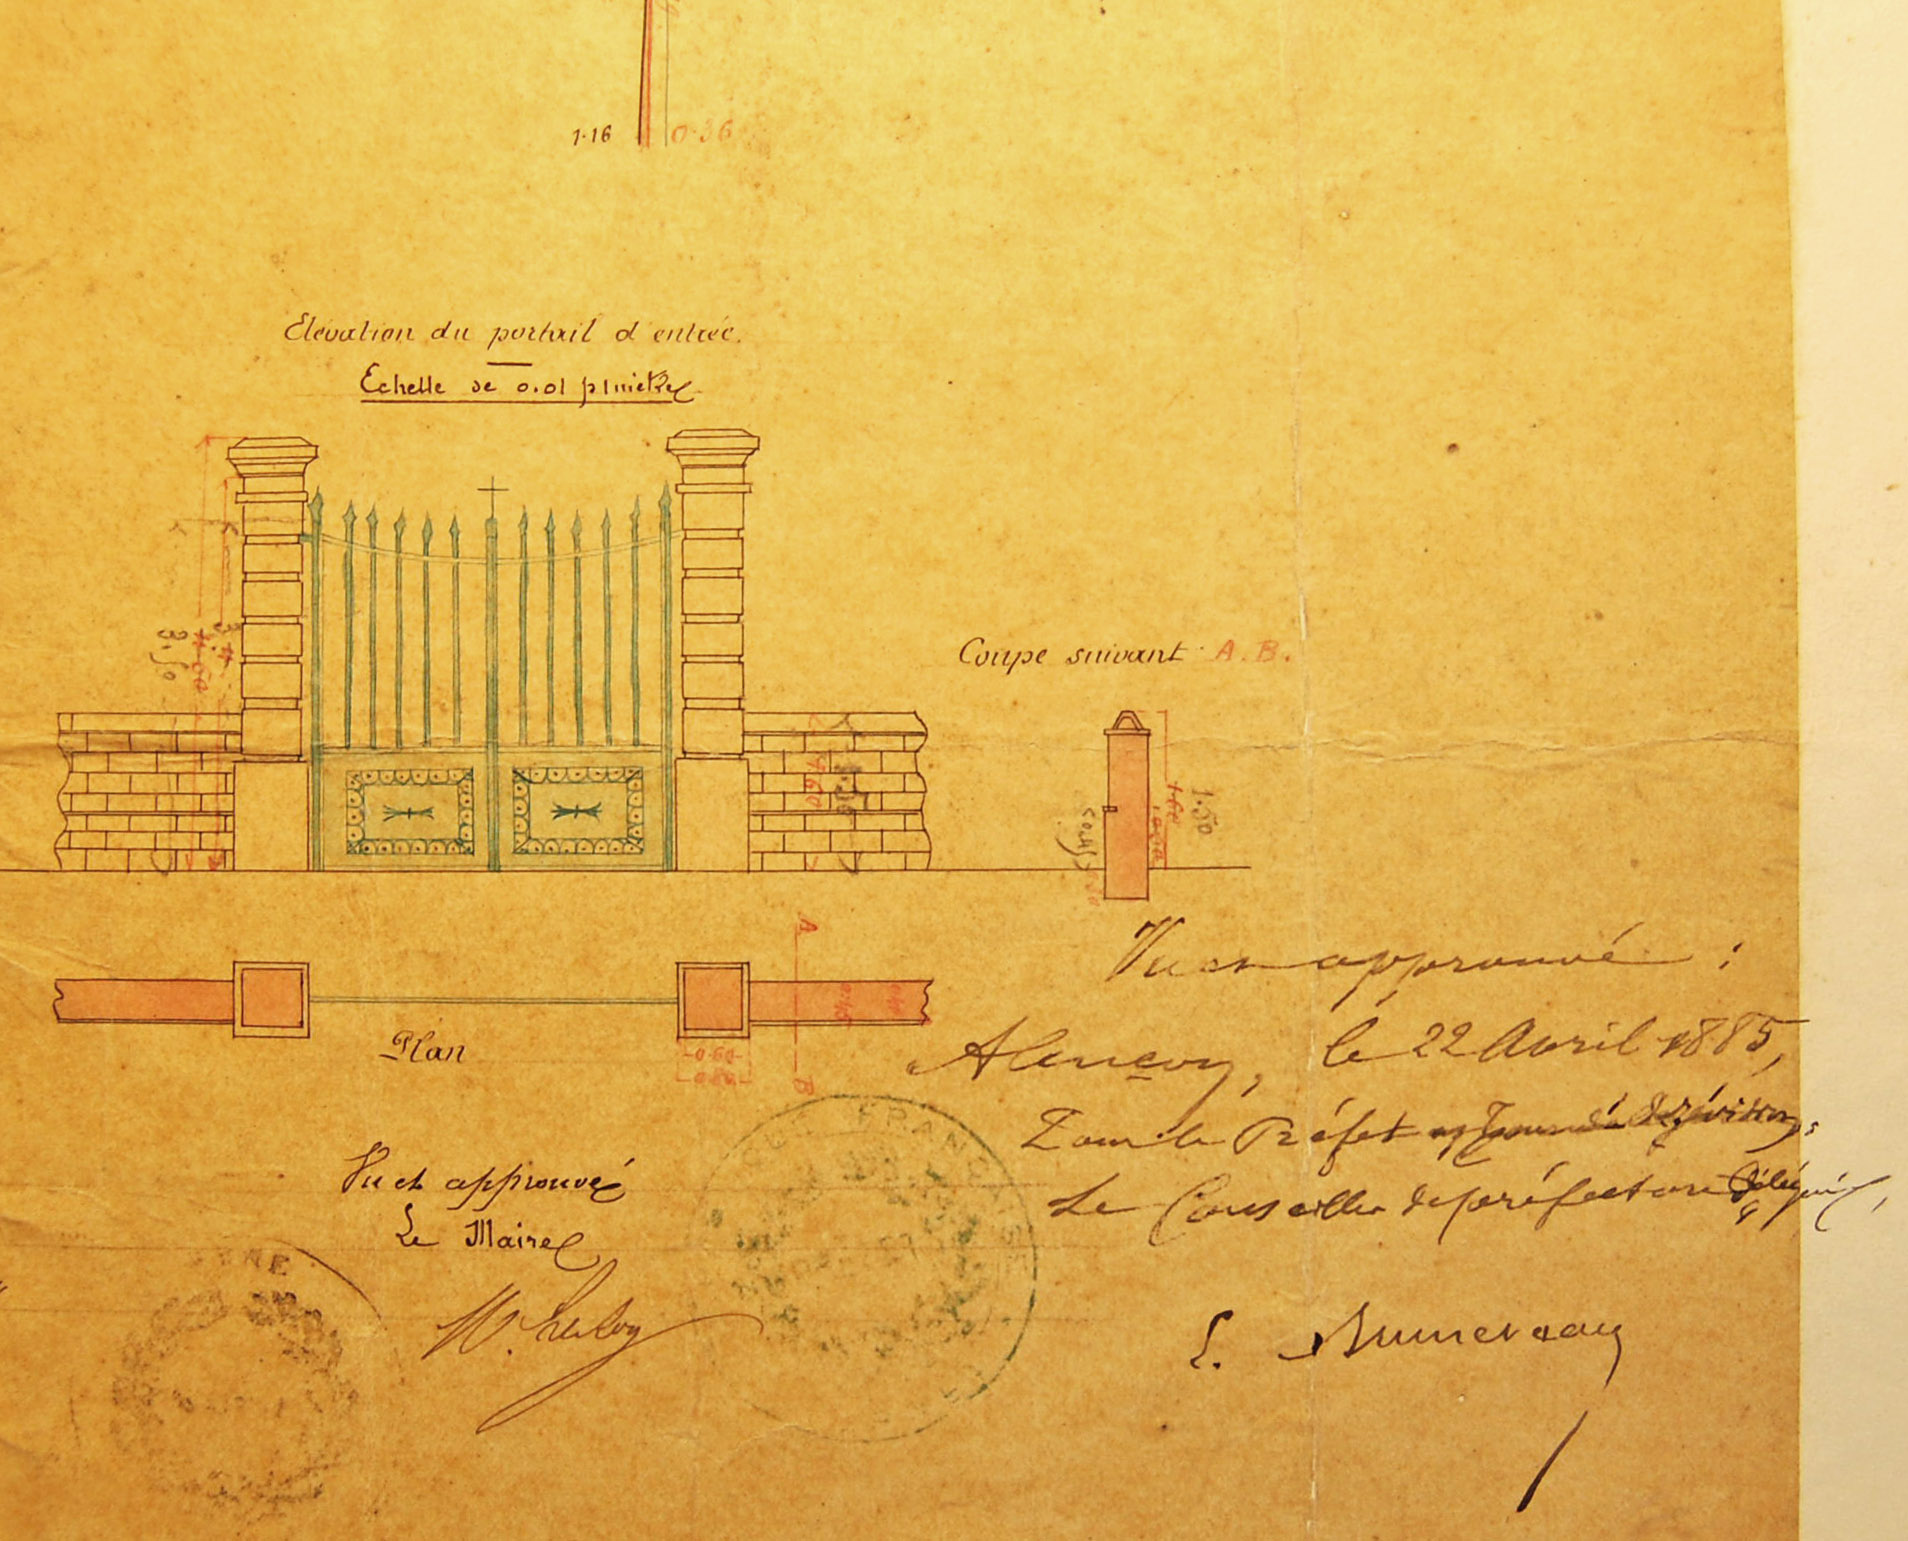 1.16
0.36
Elévation du portail d'entrée.
Echelle de 0.01 p. mètre
3.50
4.50
1.60
1.50
Coupe suivant A.B.
1.60
1.50
A
B
0.60
0.80
Plan
Vu et approuvé
Le Maire
Vu et approuvé :
Alençon, le 22 Avril 1885,
Pour le Préfet
Le Conseiller de préfecture Délégué,
FRANÇAISE